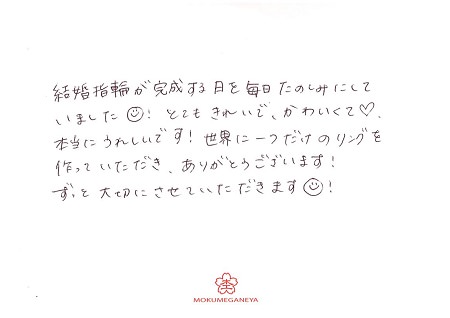 結婚指輪が完成する日を毎日たのしみにして
いました☺! とてもきれいで、かわいくて♡、
本当にうれしいです! 世界に一つだけのリングを
作っていただき、ありがとうございます!
ずっと大切にさせていただきます☺!
MOKUMEGANEYA